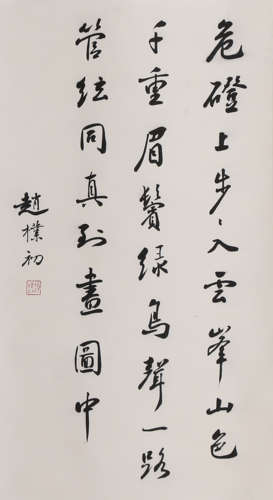 危磴上步々入雲峯山色
千重眉鬢綠鳥聲一路
管絃同真到畫圖中
趙樸初